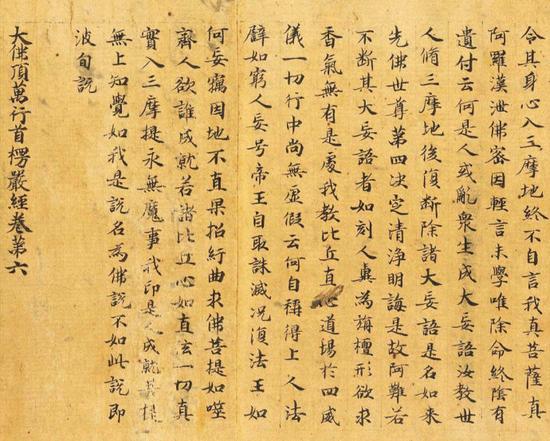 令其身心入三摩地終不自言我真菩薩真
阿羅漢泄佛密因輕言未學唯除命終陰有
遺付云何是人或亂衆生成大妄語汝教世
人脩三摩地後復斷除諸大妄語是名如來
先佛世尊第四決定清淨明誨是故阿難若
不斷其大妄語者如刻人糞為栴檀形欲求
香氣無有是處我教比丘直心道場於四威
儀一切行中尚無虛假云何自稱得上人法
譬如窮人妄号帝王自取誅滅況復法王如
何妄竊因地不直果招紆曲求佛菩提如噬
齊人欲誰成就若諸比丘心如直弦一切真
實入三摩提永無魔事我印是人成就菩提
無上知覺如我是說名為佛說不如此說即
波旬說
大佛頂萬行首楞嚴經卷第六